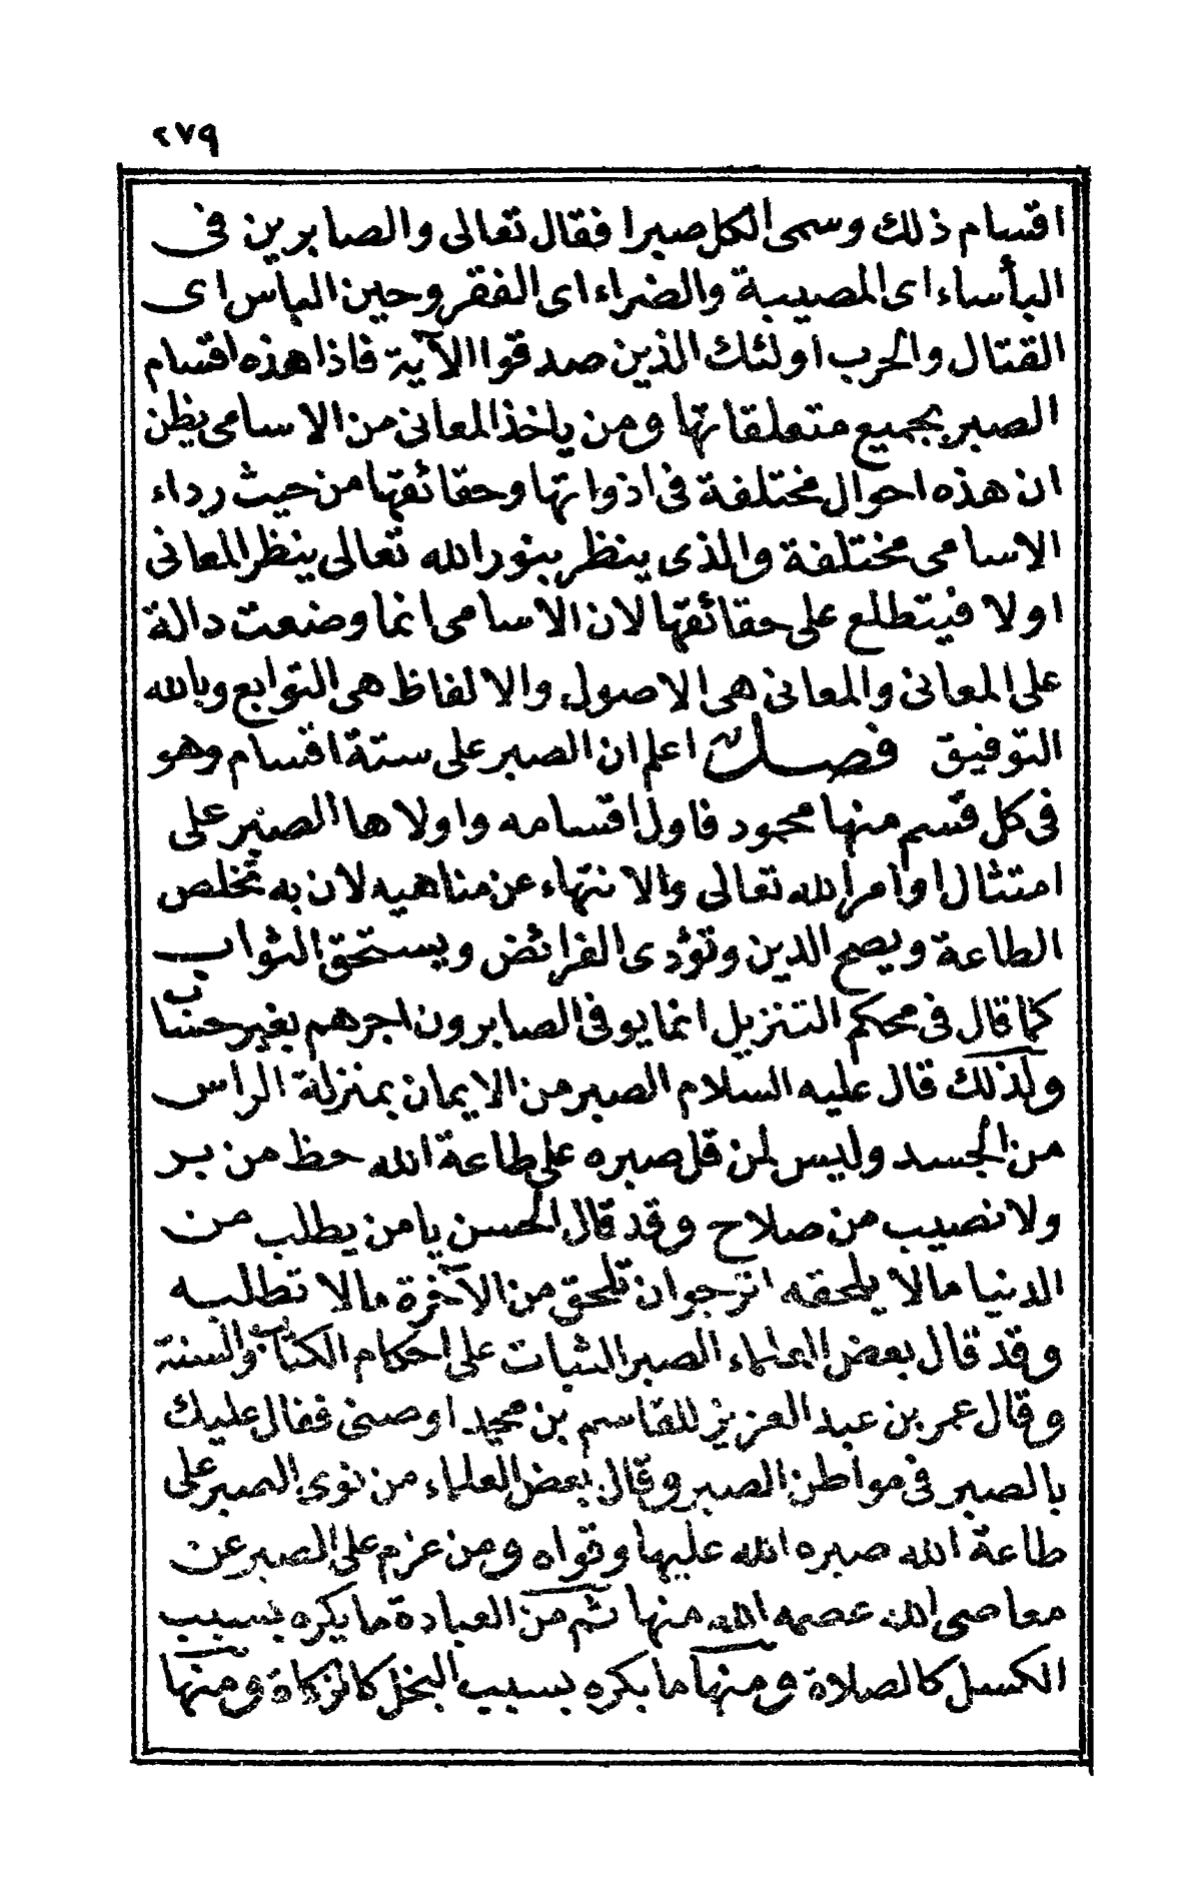 ٢٧٩
اقسام ذلك وسمى الكل صبرا فقال تعالى والصابرين فى
البأساء اى المصيبة والضراء اى الفقر وحين الباس اى
القتال والحرب اولئك الذين صدقوا الآية فاذا هذه اقسام
الصبر بجميع متعلقاتها ومن ياخذ المعانى من الاسامى يظن
ان هذه احوال مختلفة فى اذواتها وحقائقها من حيث رداء
الاسامى مختلفة والذى ينظر بنور الله تعالى ينظر المعانى
اولا فيتطلع على حقائقها لان الاسامى انما وضعت دالة
على المعانى والمعانى هى الاصول والالفاظ هى التوابع وبالله
التوفيق فصل اعلم ان الصبر على ستة اقسام وهو
فى كل قسم منها محمود فاول اقسامه واولاها الصبر على
امتثال اوامر الله تعالى والانتهاء عن مناهيه لان به تخلص
الطاعة ويصح الدين وتؤدى الفرائض ويستحق الثواب
كما قال فى محكم التنزيل انما يوفى الصابرون اجرهم بغير حساب
ولذلك قال عليه السلام الصبر من الايمان بمنزلة الراس
من الجسد وليس لمن قل صبره على طاعة الله حظ من بر
ولا نصيب من صلاح وقد قال الحسن يا من يطلب من
الدنيا مالا يلحقه اترجو ان تلحق من الآخرة مالا تطلبه
وقد قال بعض العلماء الصبر الثبات على احكام الكتاب والسنة
وقال عمر بن عبد العزيز للقاسم بن محمد اوصنى فقال عليك
بالصبر فى مواطن الصبر وقال بعض العلماء من نوى الصبر على
طاعة الله صبره الله عليها وقواه ومن عزم على الصبر عن
معاصى الله عصمه الله منها ثم من العبادة ما يكره بسبب
الكسل كالصلاة ومنها ما يكره بسبب البخل كالزكاة ومنها